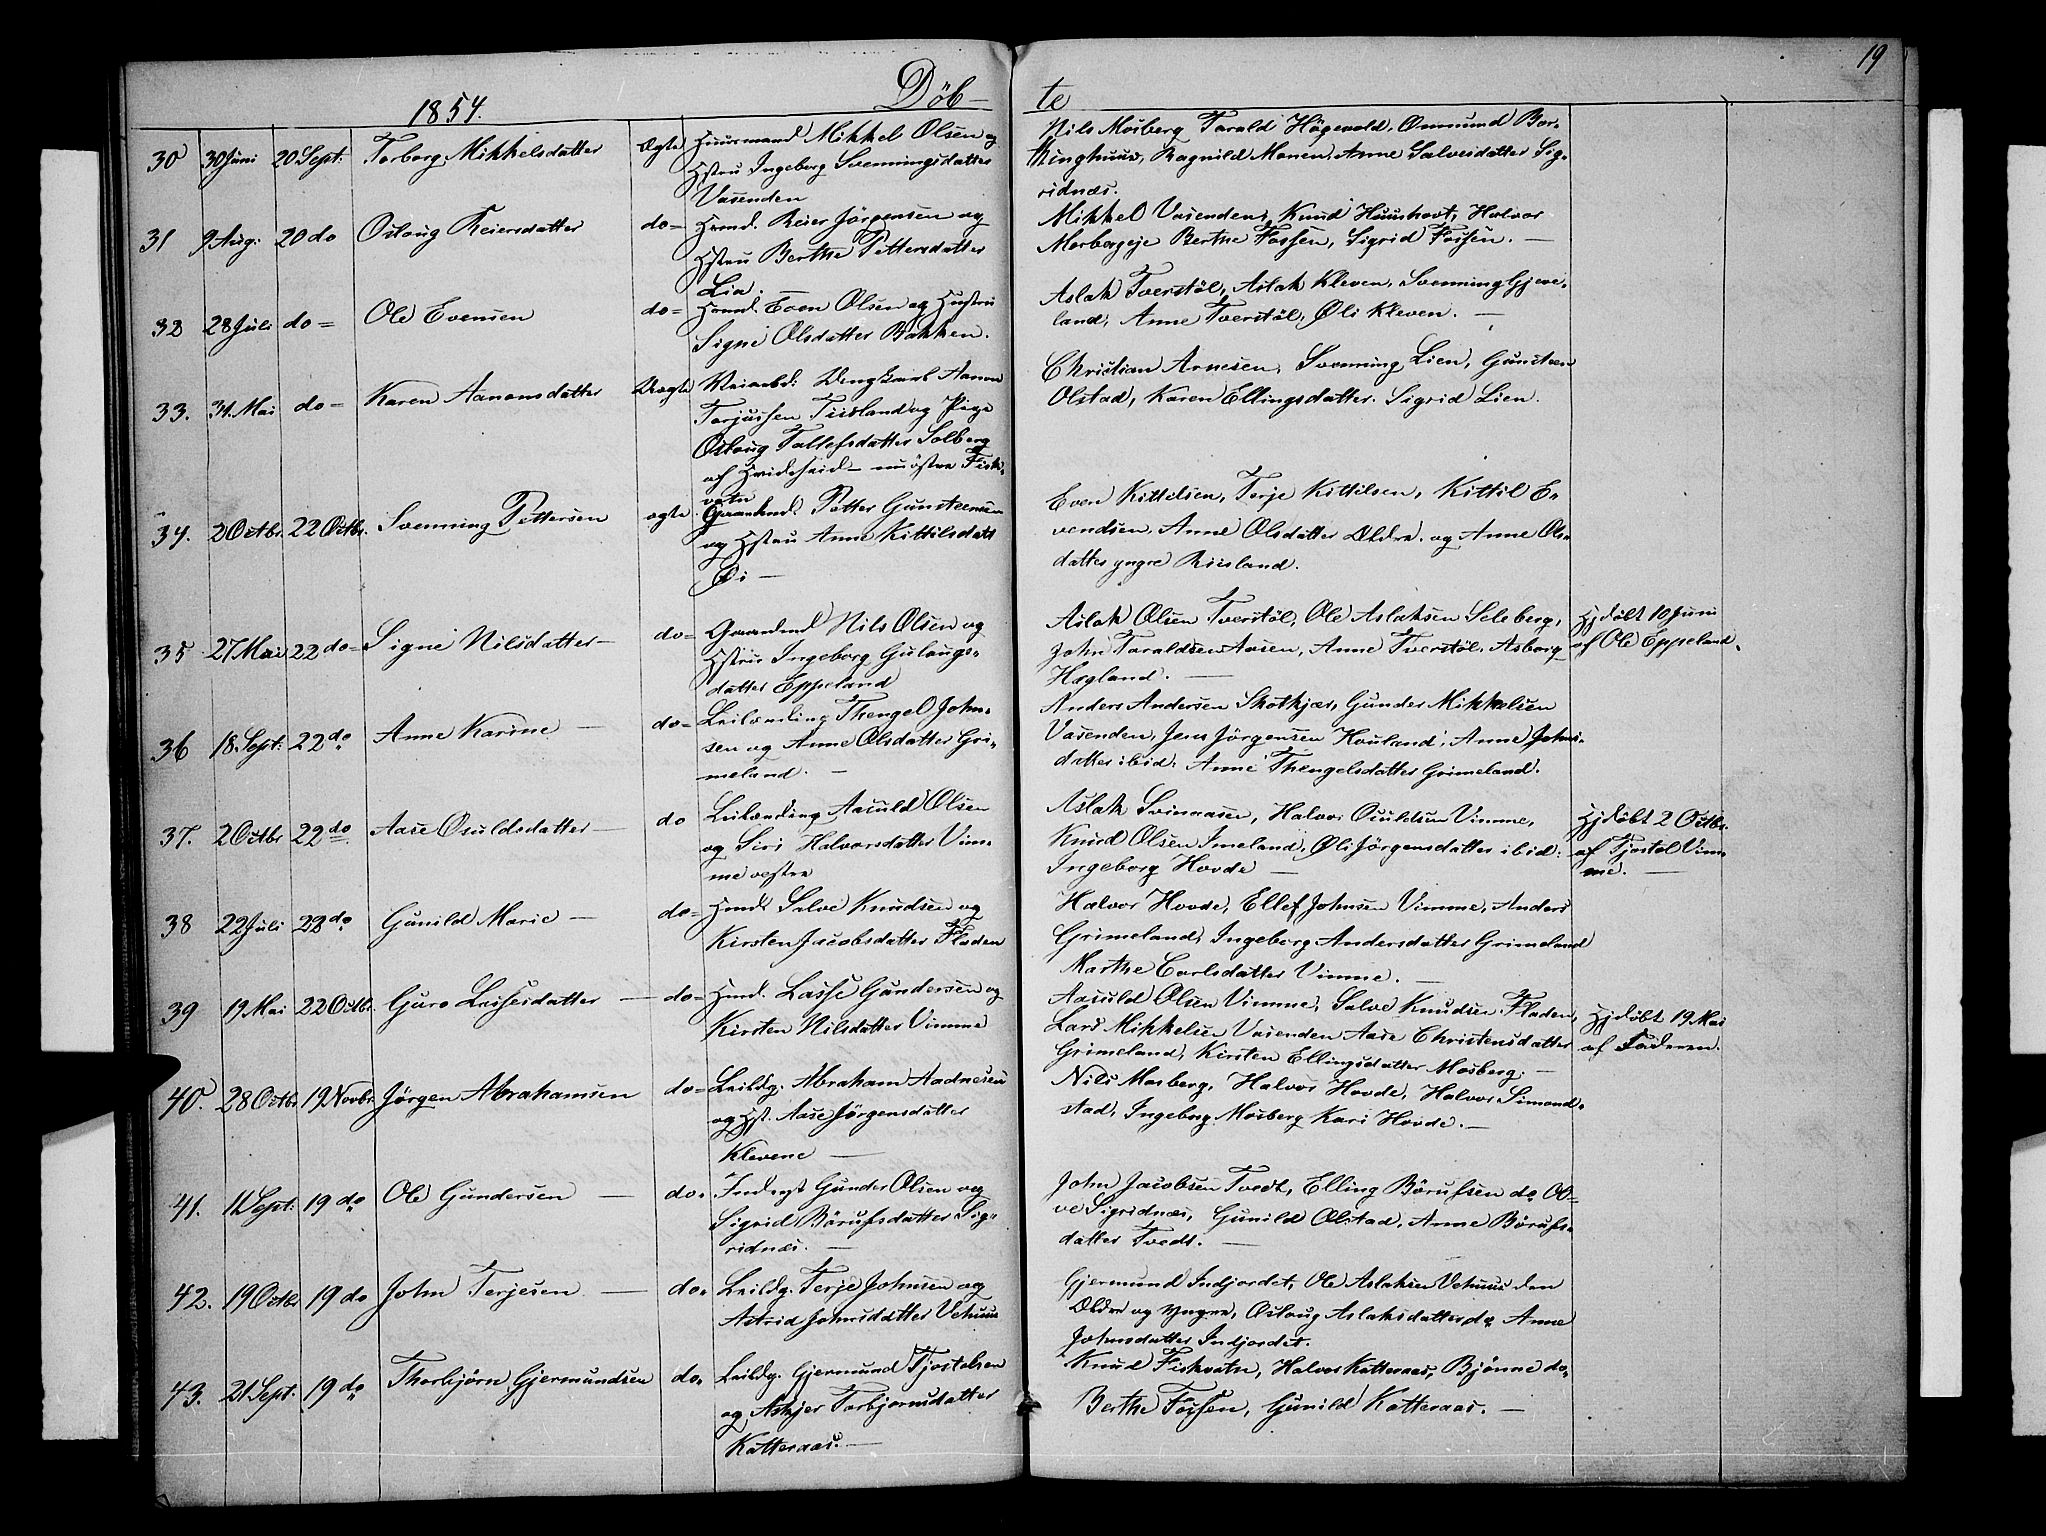 19
1854.
Döb-
te
30 30 Juni 20 Sept: Torborg Mikkelsdatter Ægte Huusmand Mikkel Olsen og
Hstru Ingeborg Svenningsdatter
Vasenden
Nils Mosberg Tarald Högevold, Omund Bor-
Ragnild Monen, Anne Salvesdatter Sig-
ridnæs.
31 9 Aug: 20 do Oslaug Reiersdatter do= Hsmd. Reier Jörgensen og
Hstru Berthe Pettersdatter
Lia.
Mikkel Vasenden, Knud Huushovt, Halvor
Mosbergeje Berthe Fossen, Sigrid Fossen. —
32 28 Juli do= Ole Evensen do= Hsmd. Even Olsen og Hustru
Signe Olsdatter Bakken.
Aslak Tverstöl, Aslak Kleven, Svenning Gjeve-
land, Anne Tverstöl, Oli Kleven. —
33. 31. Mai do= Karen Aanonsdatter Uægte Veiarbd: Ungkarl Aanon
Torjussen Tiisland og Pige
Oslaug Tallefsdatter Solberg
af Hvideseid - nu östre Fisk-
vatn
Christian Arnesen, Svenning Lien, Gunsteen
Olstad, Karen Ellingsdatter. Sigrid Lien.
34. 2 Octbr. 22 Octbr. Svenning Pettersen ægte Gaardmd. Petter Gunsteensen
og Hstru Anne Kittilsdatt
Öi —
Even Kittelsen, Terje Kittilsen, Kittil E-
vendsen, Anne Olsdatter Ældre. og Anne Ols-
datter yngre Riisland.
35 27 Mai 22 do= Signe Nilsdatter — do= Gaardmd Nils Olsen og
Hstru Ingeborg Gulaugs-
datter Eppeland
Aslak Olsen Tverstöl, Ole Aslaksen Seleberg,
John Taraldsen Aasen, Anne Tverstöl, Asborg
Hægland. —
Hjdöbt 10 Juni
af Ole Eppeland.
36 18. Sept: 22 do Anne Karine — do= Leilænding Thengel John-
sen og Anne Olsdatter Gri-
meland. —
Anders Andersen Skotkjær, Gunder Mikkelsen
Vasenden, Jens Jörgensen Houland, Anne Johns-
datter ibid: Anne Thengelsdatter Grimeland.
37. 2 Octbr 22 do Aase Osuldsdatter — do Leilænding Aasuld Olsen
og Siri Halvorsdatter Vim-
me vestre
Aslak Svinaasen, Halvor Osuldsen Vimme,
Knud Olsen Imeland, Oli Jörgensdatter ibid:
Ingeborg Hovde —
Hjdöbt 2 Octbr.
af Tjostol Vim-
me. —
38 22 Juli 22 do Gunild Marie — do= Hsmd. Salve Knudsen og
Kirsten Jacobsdatter Fladen
Halvor Hovde, Ellef Johnsen Vimme, Anders
Grimeland, Ingeborg Andersdatter Grimeland
Marthe Carlsdatter Vimme. —
39 19 Mai 22 Octbr. Guro Lassesdatter — do= Hsmd. Lasse Gundersen og
Kirsten Nilsdatter Vimme
Aasuld Olsen Vimme, Salve Knudsen Fladen,
Lars Mikkelsen Vasenden Aase Christensdatter
Grimeland, Kirsten Ellingsdatter Mosberg. —
Hjdöbt 19 Mai
af Faderen.
40. 28 Octbr 19 Novbr. Jörgen Abrahamsen do= Leildg. Abraham Aadnesen
og Hst. Aase Jörgensdatter
Klevene —
Nils Mosberg, Halvor Hovde, Halvor Simond-
stad, Ingeborg Mosberg Kari Hovde. —
41. 11 Sept: 19 do Ole Gundersen — do= Inderst Gunder Olsen og
Sigrid Börufsdatter Sig-
ridnæs. —
John Jacobsen Tvedt, Elling Börufsen do Ol-
ve Sigridnæs, Gunild Olstad, Anne Börufs-
datter Tvedt. —
42. 19 Octbr 19 do John Terjesen — do= Leildg. Terje Johnsen og
Astrid Johnsdatter Vehuus
Gjermund Indjordet, Ole Aslaksen Vehuus den
Ældre og Yngre, Oslaug Aslaksdatter do Anne
Johnsdatter Indjordet.
43. 21 Sept: 19 do Thorbjörn Gjermundsen do= Leildg. Gjermund Tjostolsen
og Askjer Torbjornsdatter
Katteraas. —
Knud Fiskvatn, Halvor Katteraas, Bjönne do-
Berthe Fossen, Gunild Katteraas. —